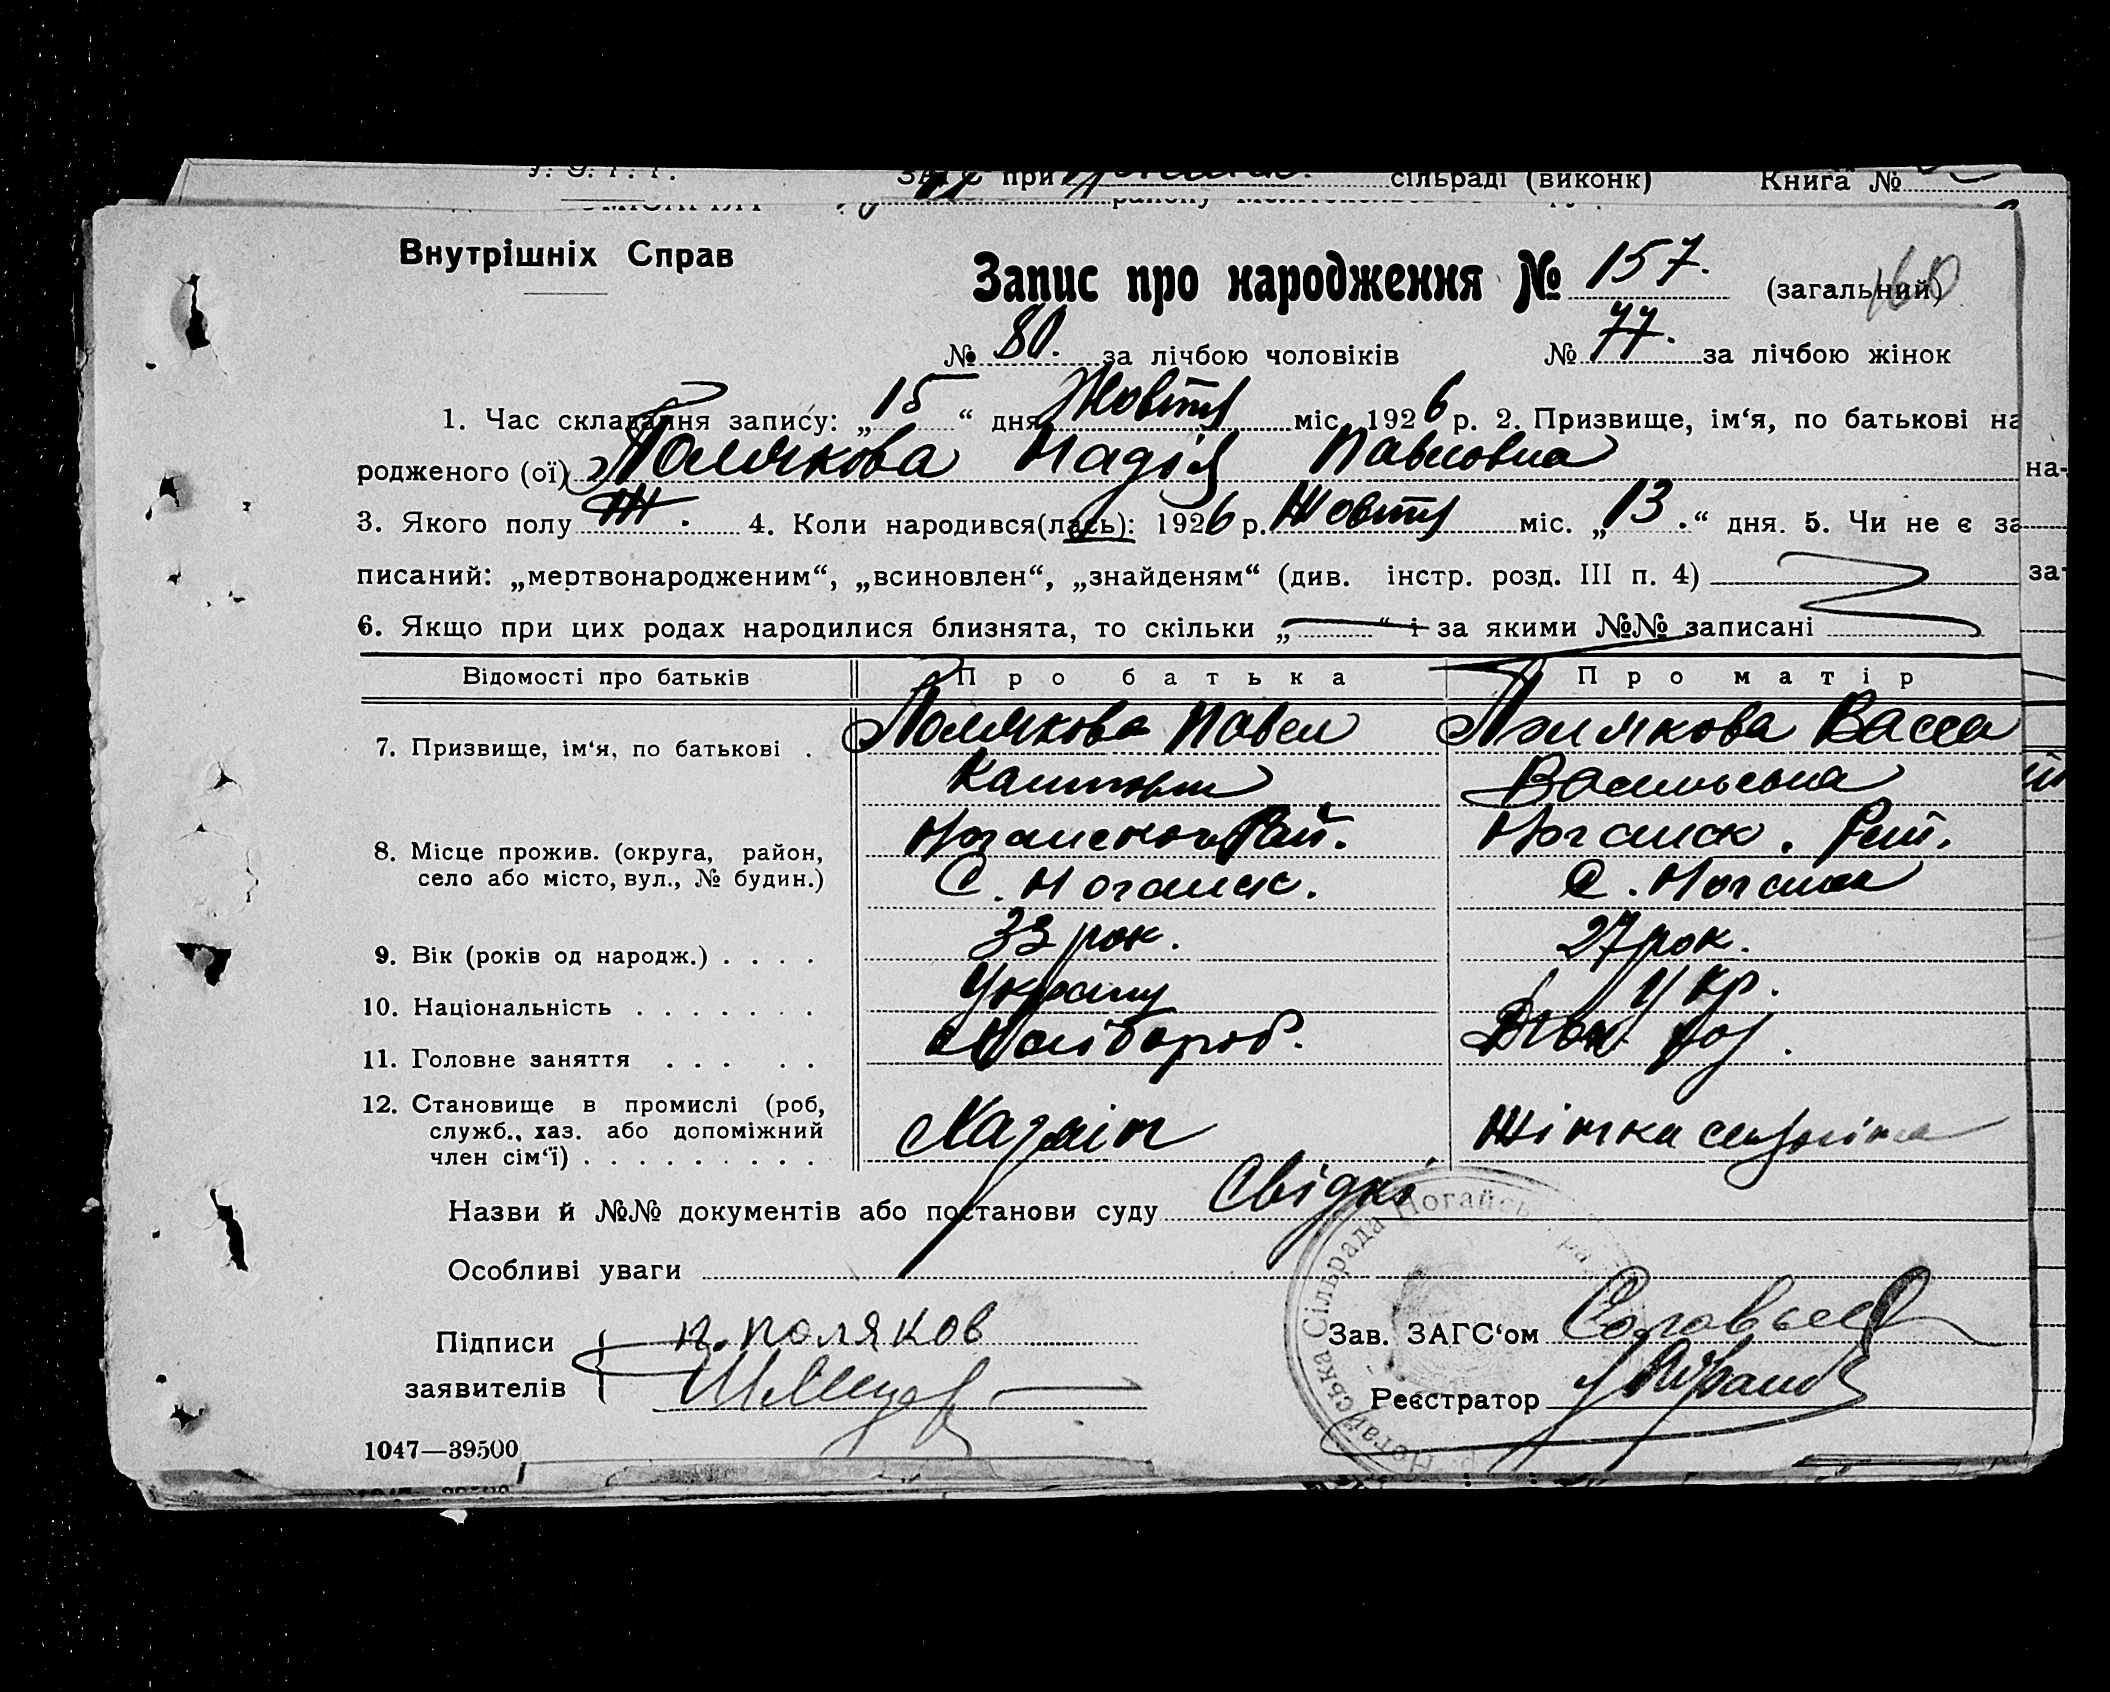 ЗАГС при сільраді (виконк) Книга №
Внутрішніх Справ
Запис про народження № 157. (загальний) 160
№ 80. за лічбою чоловіків № 77. за лічбою жінок
1. Час складання запису: „15“ дня Жовтня міс. 1926 р. 2. Призвище, ім‘я, по батькові на
родженого (ої) Полякова Надія Павловна
3. Якого полу Ж. 4. Коли народився(лась): 1926 р. Жовтня міс. „13.“ дня. 5. Чи не є за
писаний: „мертвонародженим“, „всиновлен“, „знайденям“ (див. інстр. розд. III п. 4)
6. Якщо при цих родах народилися близнята, то скільки „ “ і за якими №№ записані
Відомості про батьків Про батька Про матір
7. Призвище, ім‘я, по батькові . Полякова Павел Полякова Васса
Васильевна
8. Місце прожив. (округа, район, Рай. Ногайск. Рай.
село або місто, вул., № будин.) С. Ногайск. С. Ногайск
9. Вік (років од народж.) . . . . 33 рок. 27 рок.
10. Національність . . . . . . . Укр.
11. Головне заняття . . . . .
12. Становище в промислі (роб,
служб., хаз. або допоміжний Хазяїн
член сім‘ї) . . . . . . . . .
Назви й №№ документів або постанови суду Свідкі
Особливі уваги
Підписи п. поляков Зав. ЗАГС‘ом Соловьев
заявителів Реєстратор
Ногайська Сільрада Ногайськ
1047—39500
на-
за-